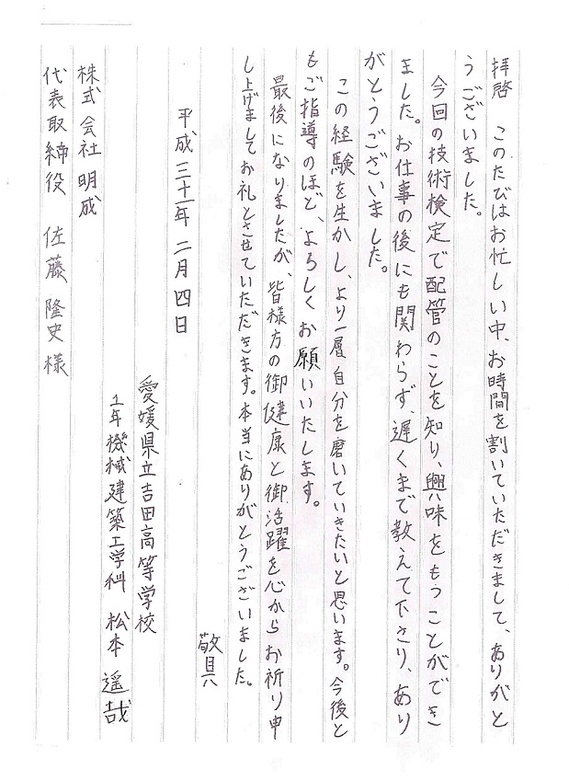 拝啓　このたびはお忙しい中、お時間を割いていただきまして、ありがと
うございました。
今回の技術検定で配管のことを知り、興味をもうことができ
ました。お仕事の後にも関わらず、遅くまで教えて下さり、あり
がとうございました。
この経験を生かし、より一層自分を磨いていきたいと思います。今後と
もご指導のほど、よろしくお願いいたします。
最後になりましたが、皆様方の御健康と御活躍を心からお祈り申
し上げましてお礼とさせていただきます。本当にありがとうございました。
敬具
平成三十一年二月四日
愛媛県立吉田高等学校
1年機械建築工学科　松本　遥哉
株式会社明成
代表取締役　佐藤　隆史様